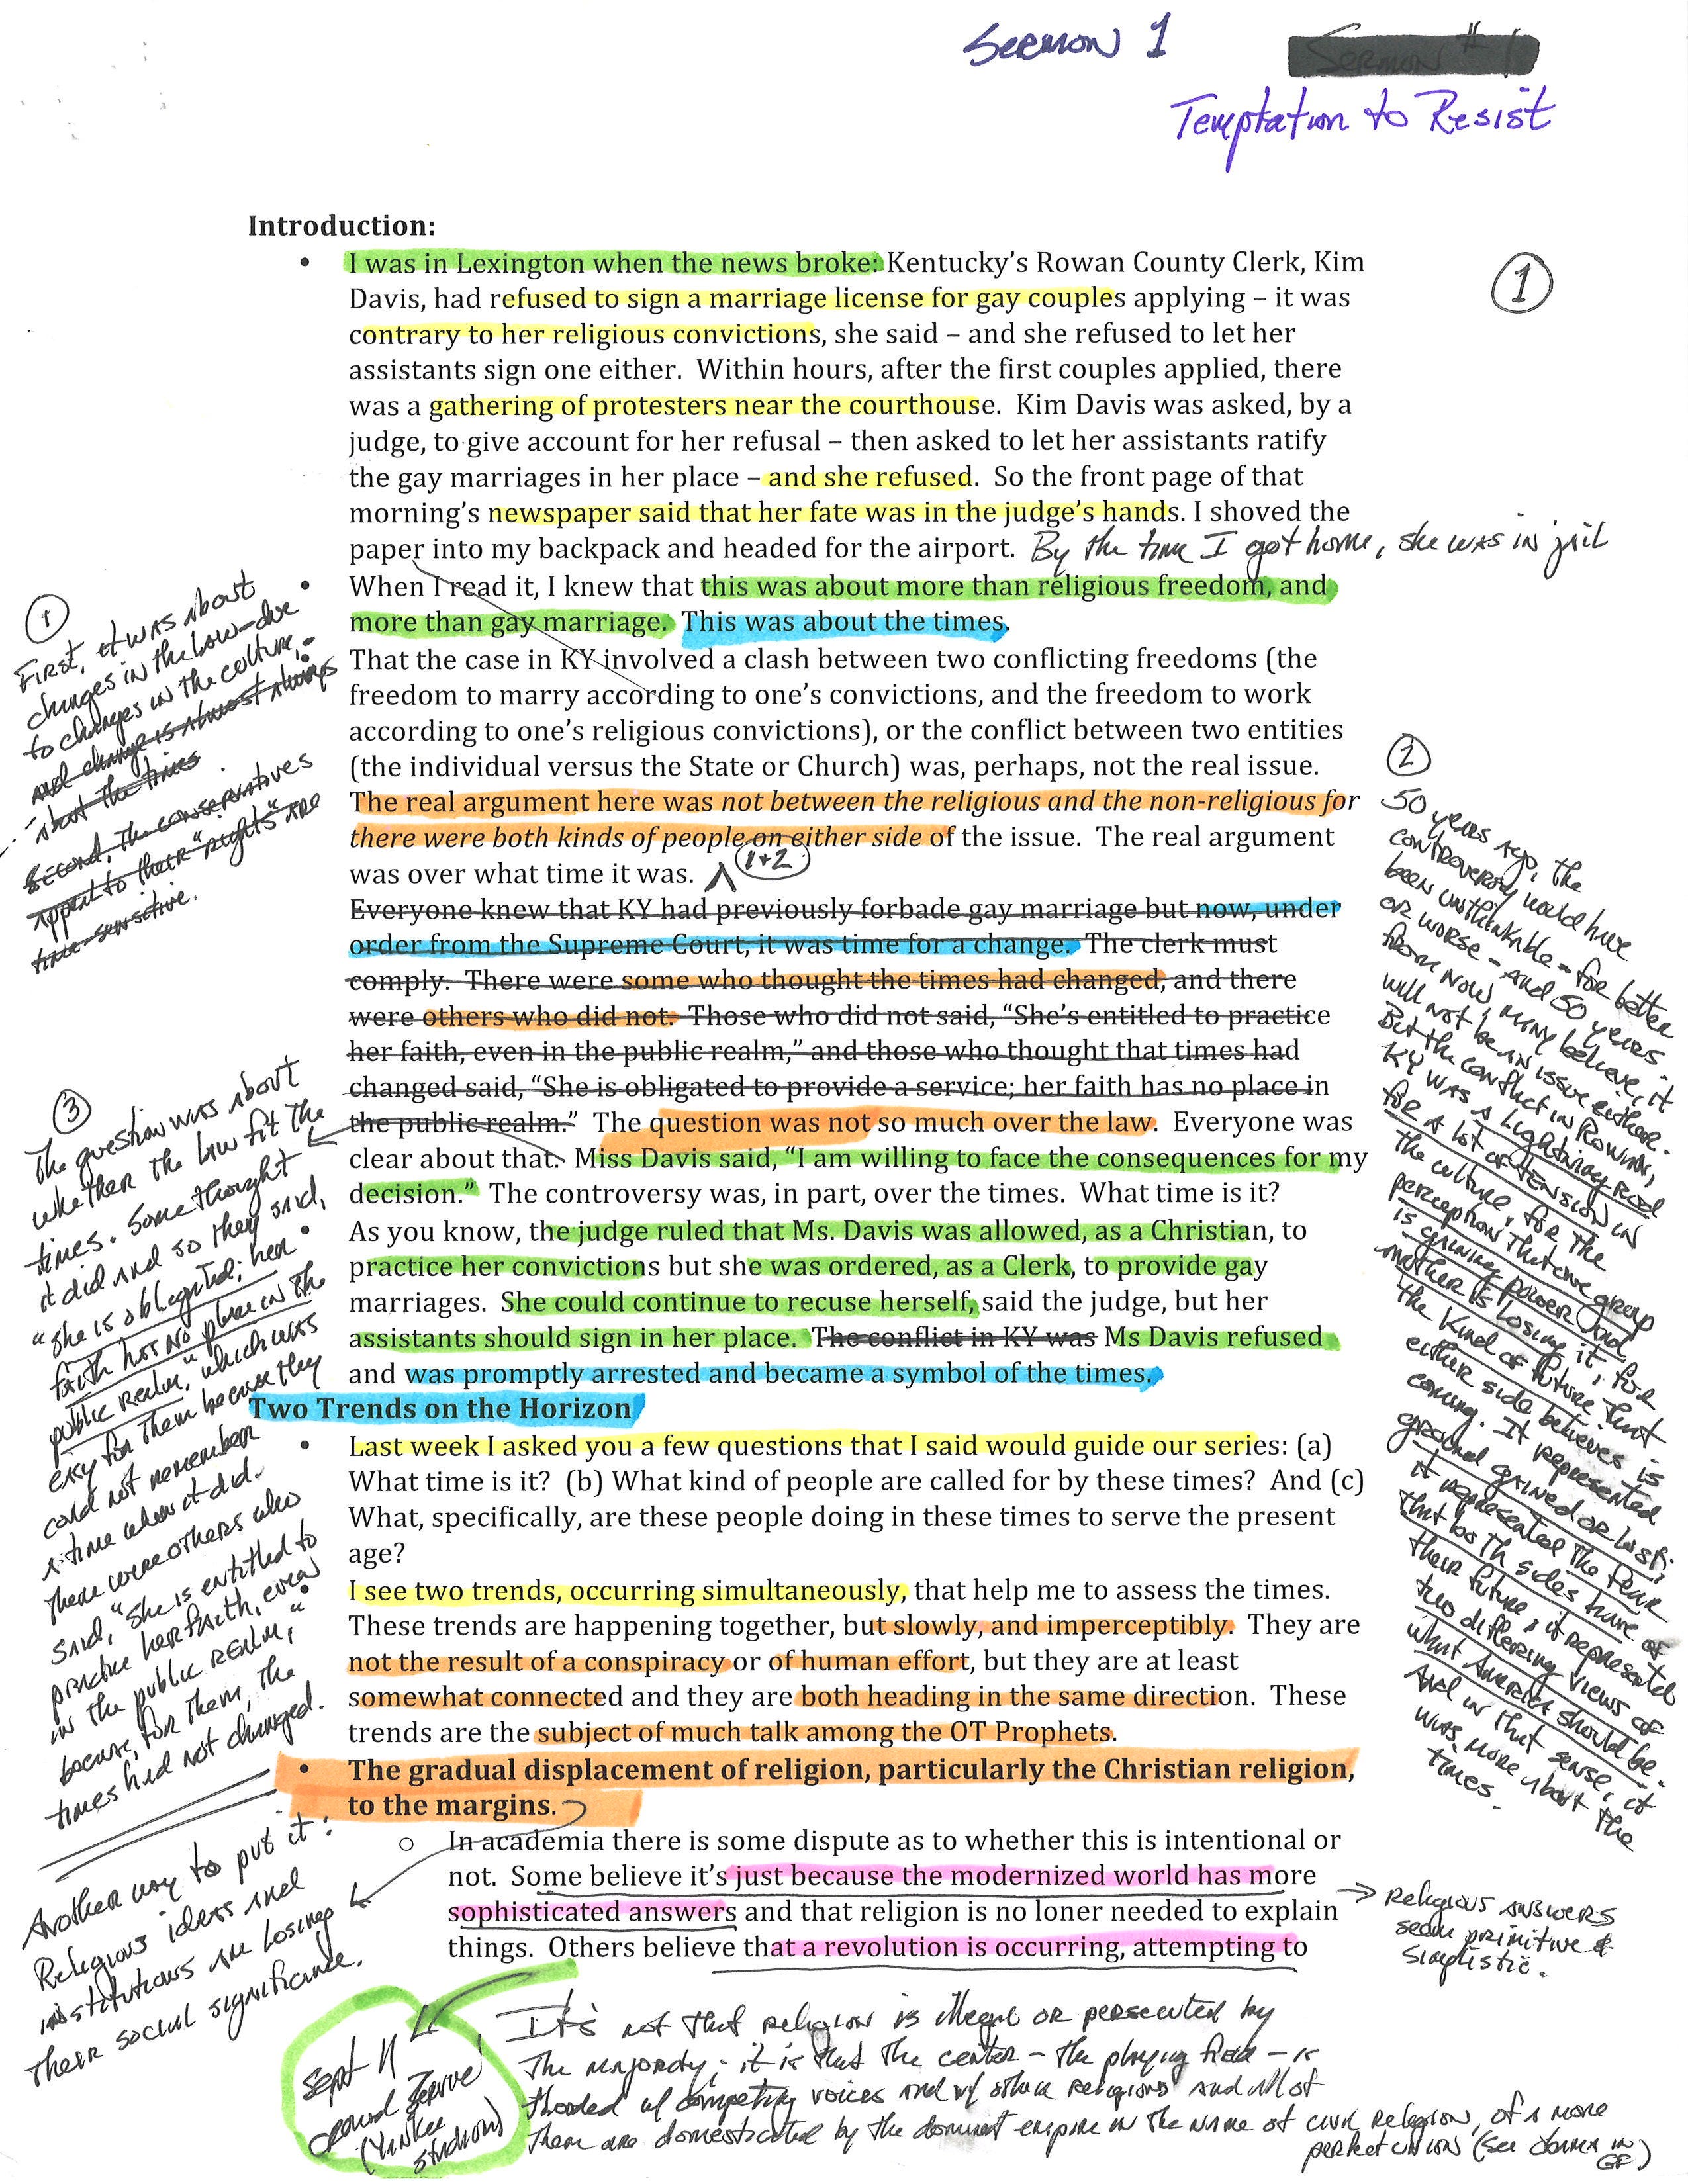 Sermon 1
Sermon #1
Temptation to Resist
1
Introduction:
• I was in Lexington when the news broke: Kentucky's Rowan County Clerk, Kim
Davis, had refused to sign a marriage license for gay couples applying – it was
contrary to her religious convictions, she said – and she refused to let her
assistants sign one either.  Within hours, after the first couples applied, there
was a gathering of protesters near the courthouse.  Kim Davis was asked, by a
judge, to give account for her refusal – then asked to let her assistants ratify
the gay marriages in her place – and she refused.  So the front page of that
morning's newspaper said that her fate was in the judge's hands. I shoved the
paper into my backpack and headed for the airport. By the time I got home, she was in jail
• When I read it, I knew that this was about more than religious freedom, and
more than gay marriage.  This was about the times.
• That the case in KY involved a clash between two conflicting freedoms (the
freedom to marry according to one's convictions, and the freedom to work
according to one's religious convictions), or the conflict between two entities
(the individual versus the State or Church) was, perhaps, not the real issue.
The real argument here was not between the religious and the non-religious for
there were both kinds of people on either side of the issue.  The real argument
was over what time it was. 1+2
Everyone knew that KY had previously forbade gay marriage but now, under
order from the Supreme Court, it was time for a change.  The clerk must
comply.  There were some who thought the times had changed, and there
were others who did not.  Those who did not said, “She's entitled to practice
her faith, even in the public realm,” and those who thought that times had
changed said, “She is obligated to provide a service; her faith has no place in
the public realm.”  The question was not so much over the law.  Everyone was
clear about that.  Miss Davis said, “I am willing to face the consequences for my
decision.”  The controversy was, in part, over the times.  What time is it?
• As you know, the judge ruled that Ms. Davis was allowed, as a Christian, to
practice her convictions but she was ordered, as a Clerk, to provide gay
marriages.  She could continue to recuse herself, said the judge, but her
assistants should sign in her place.  The conflict in KY was Ms Davis refused
and was promptly arrested and became a symbol of the times.
Two Trends on the Horizon
• Last week I asked you a few questions that I said would guide our series: (a)
What time is it?  (b) What kind of people are called for by these times?  And (c)
What, specifically, are these people doing in these times to serve the present
age?
• I see two trends, occurring simultaneously, that help me to assess the times.
These trends are happening together, but slowly, and imperceptibly.  They are
not the result of a conspiracy or of human effort, but they are at least
somewhat connected and they are both heading in the same direction.  These
trends are the subject of much talk among the OT Prophets.
• The gradual displacement of religion, particularly the Christian religion,
to the margins.
o In academia there is some dispute as to whether this is intentional or
not.  Some believe it's just because the modernized world has more
sophisticated answers and that religion is no loner needed to explain
things.  Others believe that a revolution is occurring, attempting to
1
First, it was about
changes in the law – due
to changes in the culture,
and change is almost always
about the times
Second, the conservatives
appeal to their "rights" are
time-sensitive.
2
50 years ago, the
controversy would have
been unthinkable – for better
or worse – and 50 years
from now, many believe, it
will not be an issue either.
But the conflict in Rowan,
KY was a lightning rod
for a lot of tension in
the culture, for the
perception that one group
is gaining power and
another is losing it, for
the kind of future that
either side believes is
coming. It represented
ground gained or lost;
it represented the fear
that both sides have of
their future; it represented
two differing views of
what America should be.
And in that sense, it
was more about the
times.
3
The question was about
whether the law fit the
times. Some thought
it did and so they said,
"she is obligated; her
faith has no place in the
public realm," which was
easy for them because they
could not remember
a time when it did.
There were others who
said, "She is entitled to
practice her faith, even
in the public realm,"
because, for them, the
times had not changed.
Another way to put it:
Religious ideas and
institutions are losing
their social significance.
Religious answers
seem primitive &
simplistic.
Sept 11
(Yankee
Stadium)
It's not that religion is illegal or persecuted by
the majority; it is that the center – the playing field – is
flooded w/ competing voices and w/ other religions and all of
them are domesticated by the dominant empire in the name of civil religion, of a more
perfect union (see Obama in GF)